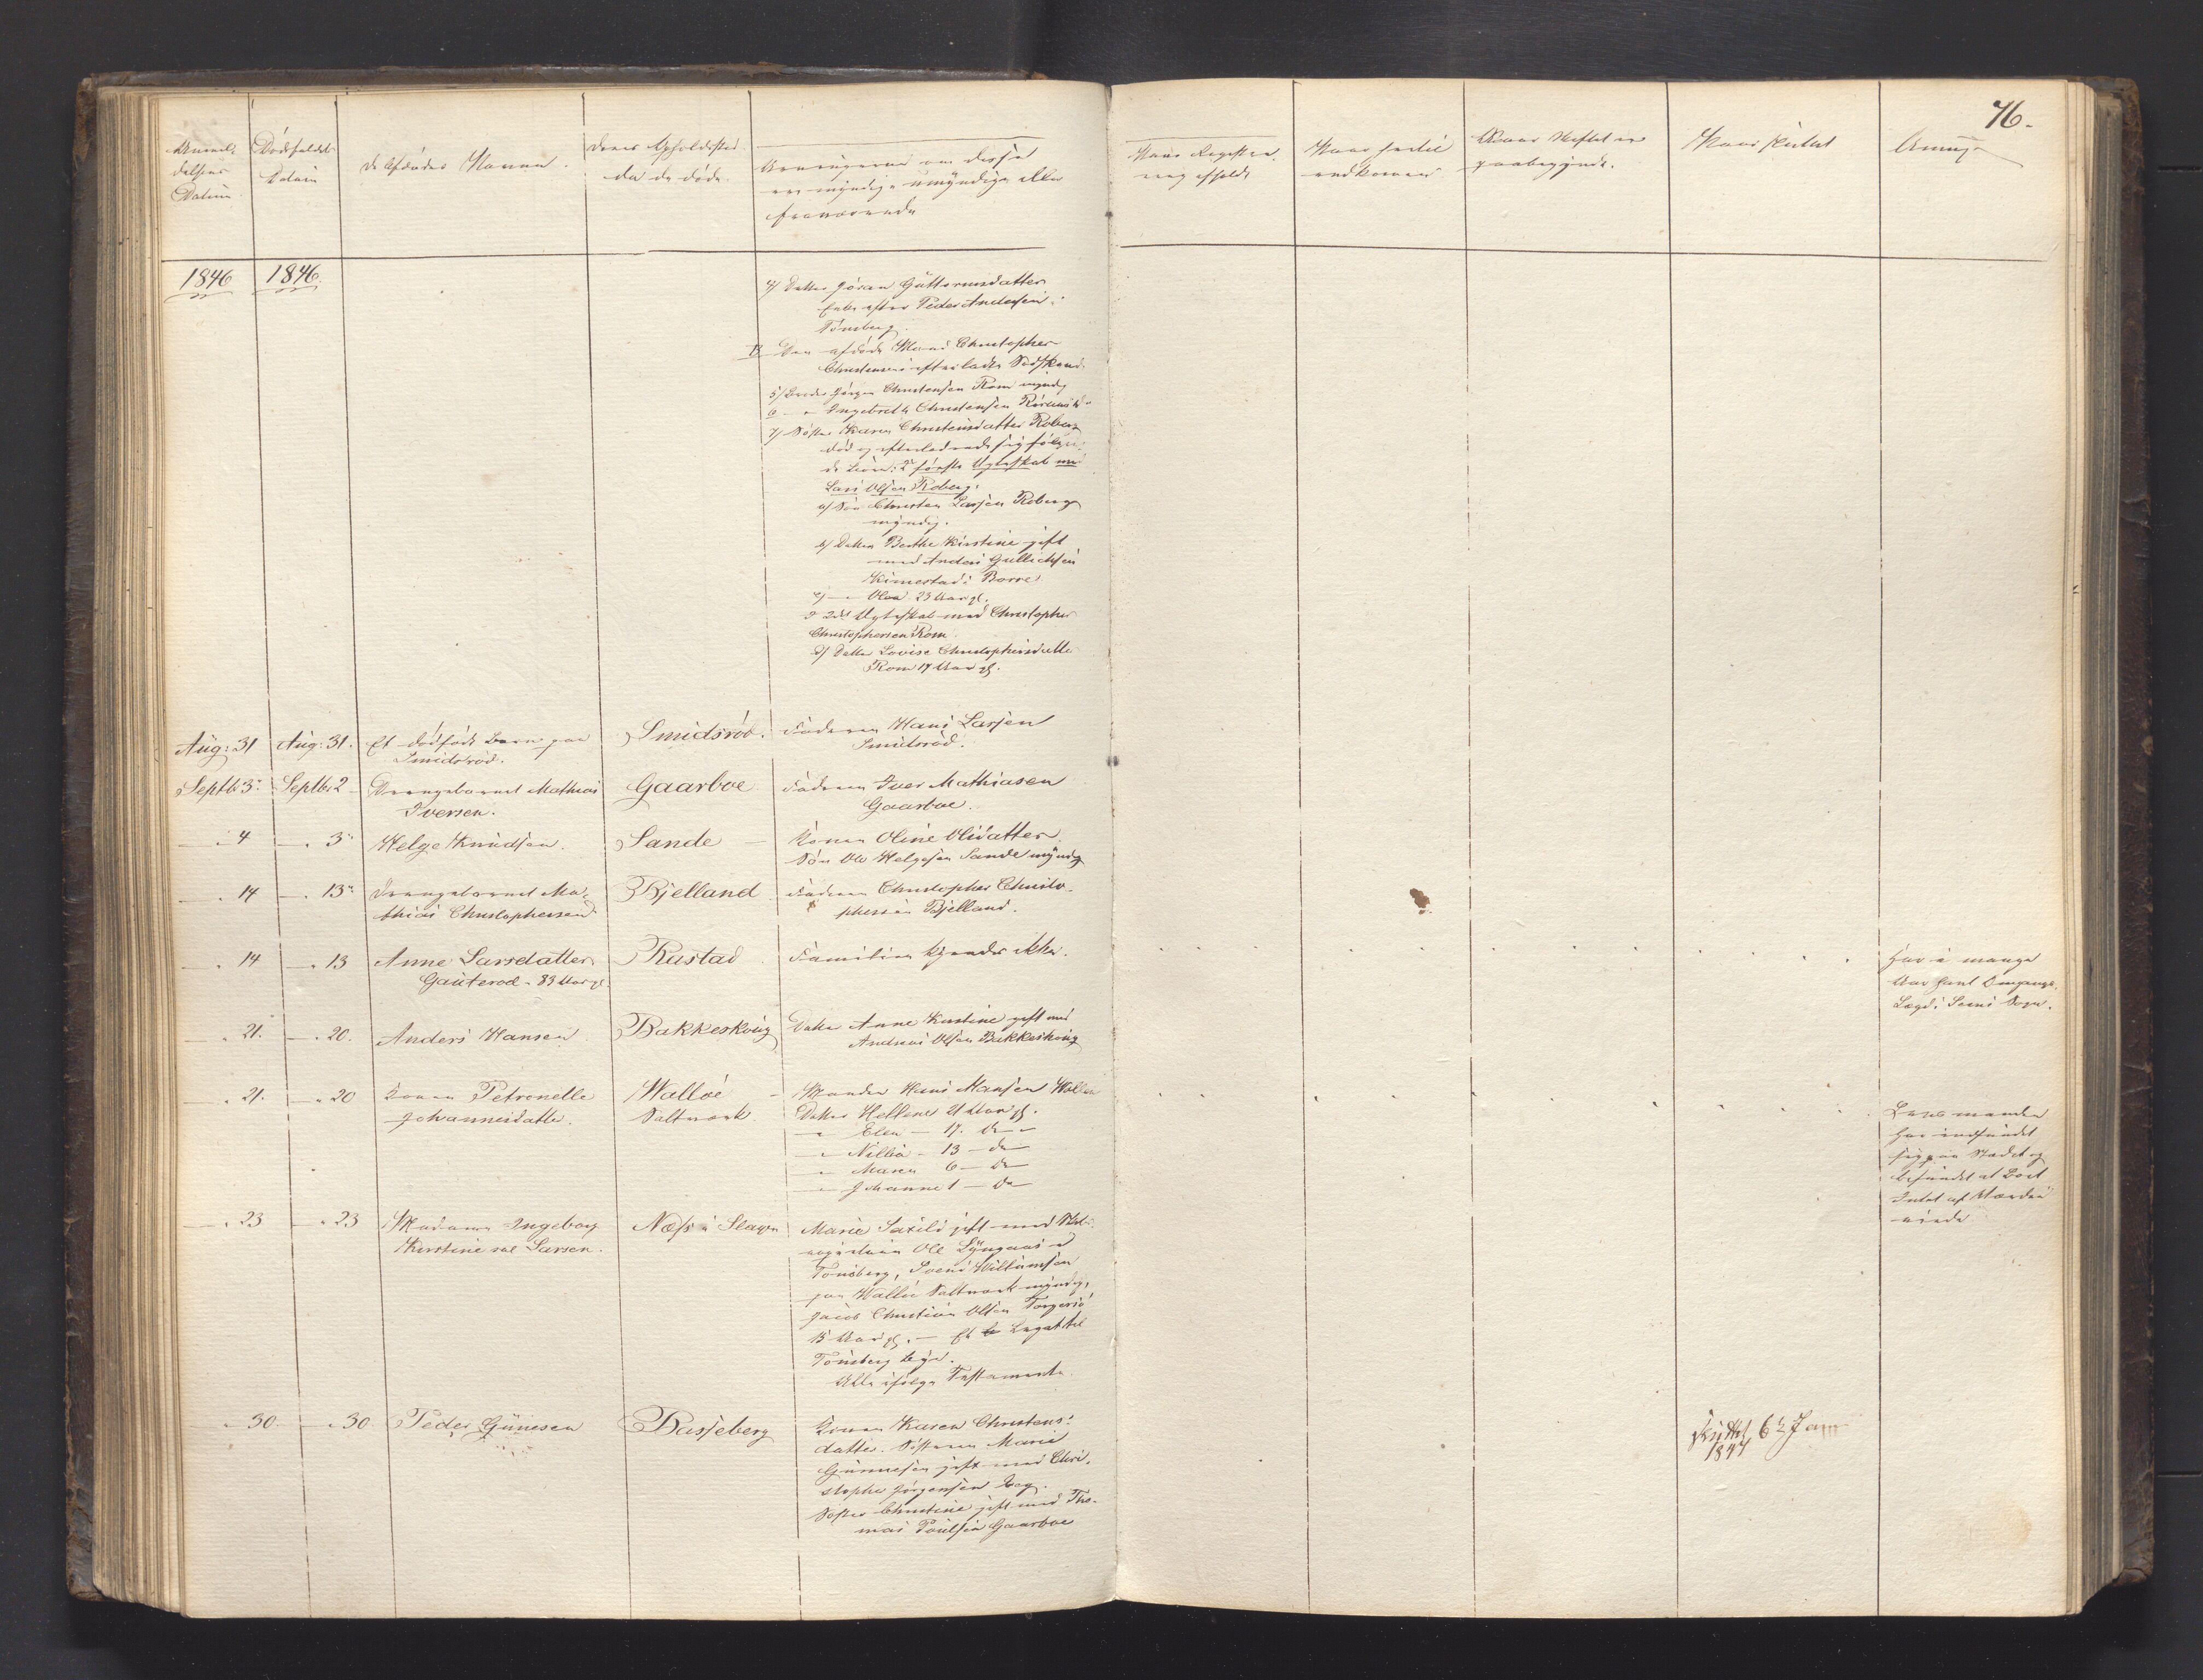 76.
Anmel-
delsens
Datum
Dödsfaldets
Datum
de Afdödes Navne.
deres Opholdssted
da de döde.
Arvingerne om disse
ere myndige umyndige eller
fraværende
Naar Registre-
ring afholdt
Naar Skiftet er
paabegyndt.
Naar sluttet
Anmg.
1846
1846.
4/ Datter Jöran Guttormsdatter
Enke efter Peder Andersen
Tönsberg.
B Den afdöde Mand Christopher
Christensens efterladte Sødskende
5/ Broder Jörgen Christensen Rom myndig
6 - " Ingebreth Christensen
7/ Söster Karen Christensdatter Roberg
död og efterladende sig fölgen-
de Börn: I første Ægteskab med
Lars Olsen Roberg:
a/ Sön Christen Larsen Roberg
myndig.
b/ Datter Berthe Kirstine gift
med Anders Gullichsen
Kimestad i Borre
c/ — " Olea 23 Aar gl.
I 2det Ægteskab med Christopher
Christophersen Rom
d/ Datter Lovise Christophersdatter
Rom 17 Aar gl.
Aug: 31
Aug: 31.
Et dödfödt Barn paa
Smidsröd.
Smidsröd.
Faderen Hans Larsen
Smidsröd.
Septb 3
Septb. 2
Drengebarnet Mathias
Iversen.
Gaarboe
Faderen Iver Mathiasen
Gaarboe.
" 4
" 3
Helge Knudsen.
Sande
Konen Oline Olsdatter
Sön Ole Helgesen Sande myndig
" 14
" 13
Drengebarnet Ma-
thias Christophersen
Bjelland
Faderen Christopher Christo-
phersen Bjelland.
" 14
" 13
Anne Larsdatter
Gauteröd - 83 Aar gl
Rustad
Familien kjendes ikke.
Har i mange
Aar havt Omgangs-
Lægd i Sems Sogn.
" 21.
" 20.
Anders Hansen
Bakkeskoug
Datter Anne Kirstine gift med
Andreas Olsen Bakkeskoug
" 21.
" 20
Konen Petronelle
Johannesdatter.
Walløe
Saltværk
Manden Hans Hansen Walløe
Datter Hellene 21 Aar gl.
— " Elen — 17. do "
— " — 13 — do
— " Maren 6 — do
— " Johanne 1 — do
Lensmanden
har indfundet
sig paa Stedet og
befundet at Boet
Intet af Værdie
eiede
" 23
" 23
Madame Ingeborg
Kirstine sal Larsen.
Næss i Slagen
Marie gift med
Ole Lyngaas i
Tönsberg, Svend Williamsen
paa Walløe Saltværk myndig,
Jacob Christian Olsen Torgersö
15 Aar gl. — Et Legat til
Tönsberg Bye.
Alle ifölge Testamente
" 30
" 30
Peder Gunesen
Basseberg
Konen Karen Christens-
datter. Sösteren Marie
Gunnesen gift med Chri-
stopher Jörgensen
Söster Christine gift med Tho-
mas Poulsen Gaarboe
sluttet 6 Jan
1847